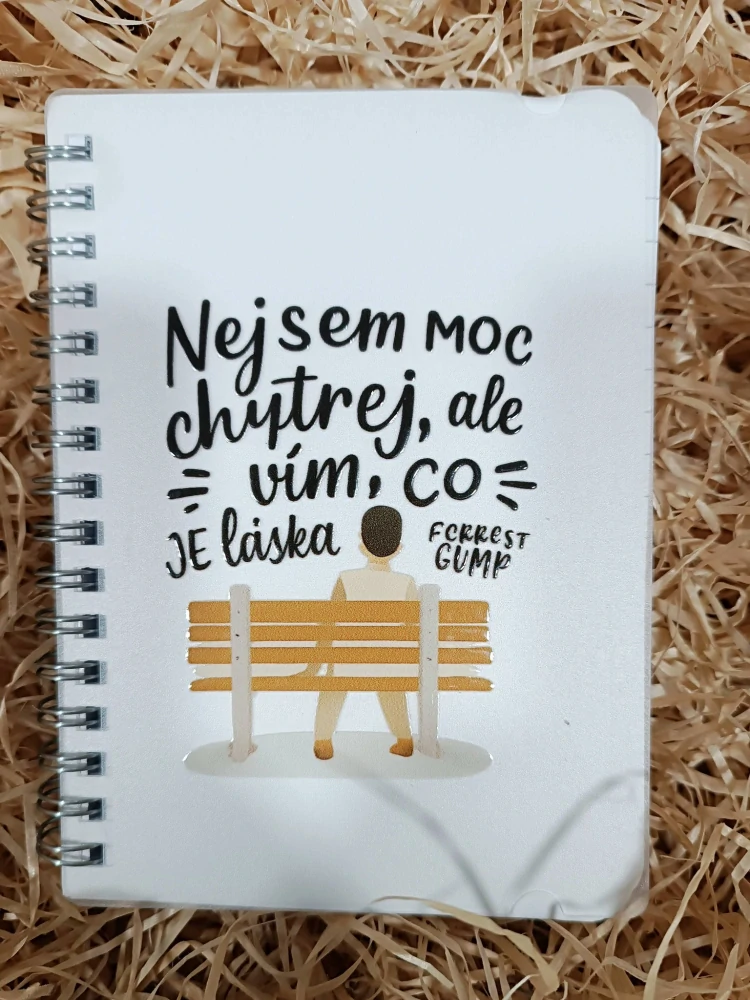 Nejsem moc
chytrej, ale
vím, co
JE láska
FORREST
GUMP